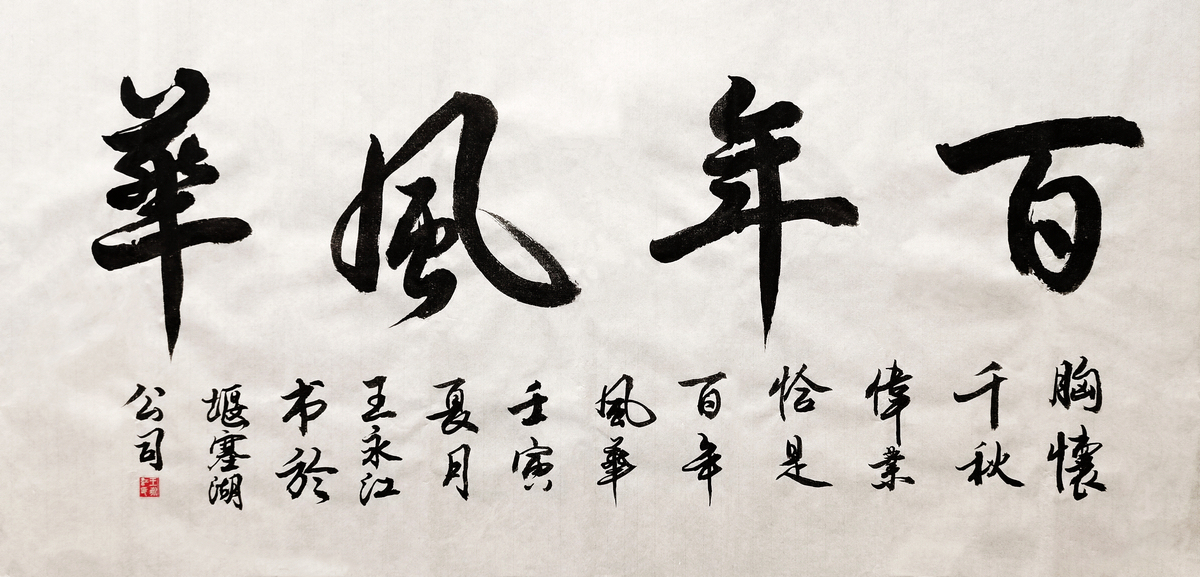 百年風華
胸懷
千秋
偉業
恰是
百年
風華
壬寅
夏月
王永江
书於
堰塞湖
公司